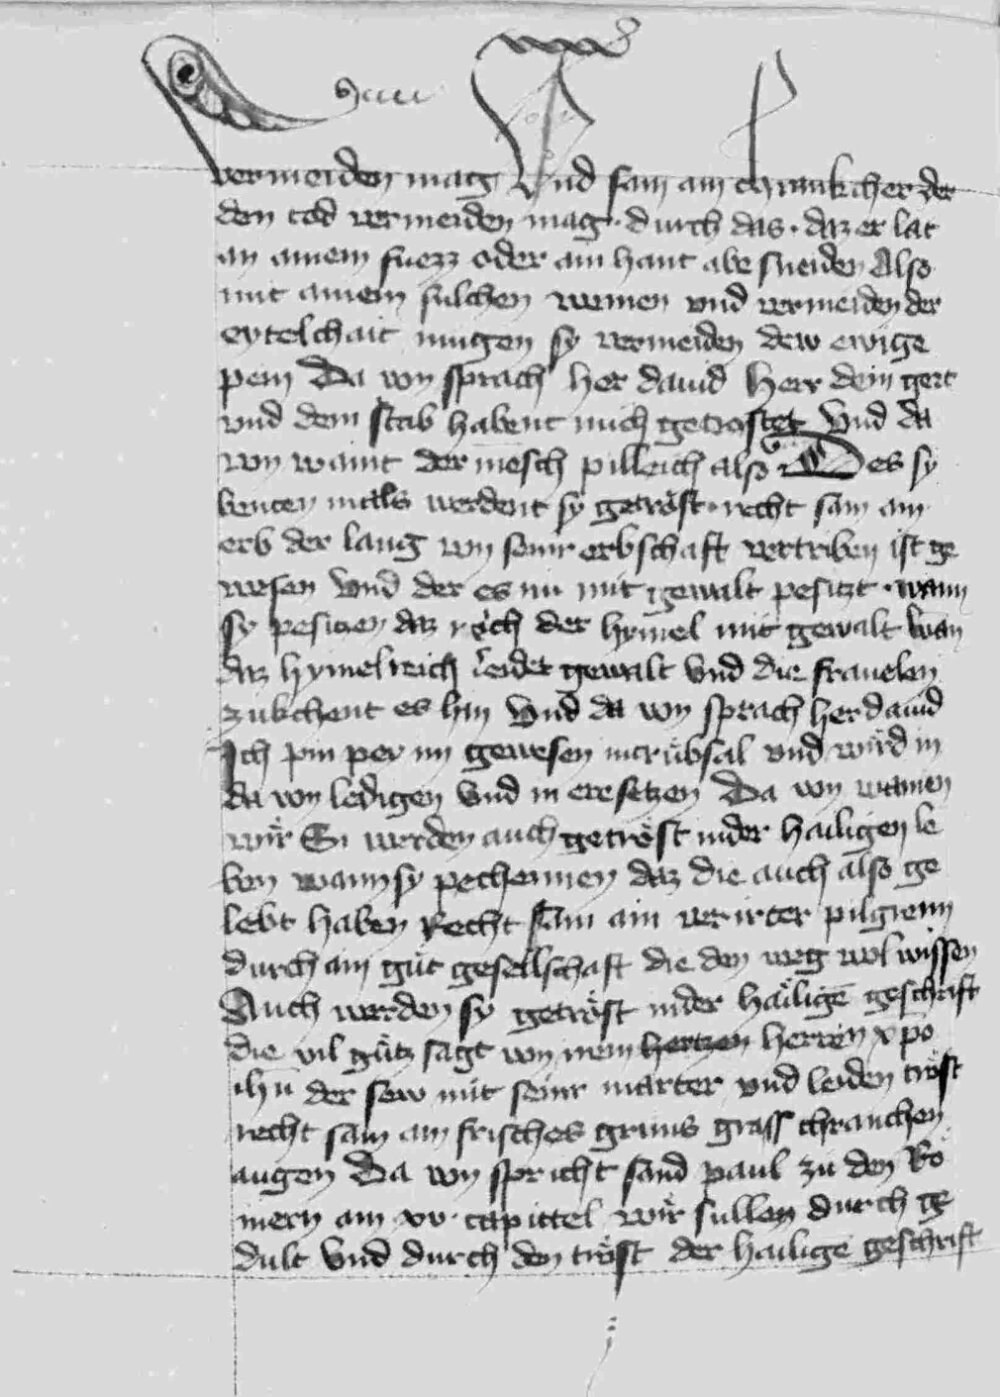 vermeiden mag Und sam ain chrankcher der
den tod vermeiden mag · durch das · daz er lat
an ainem fuezz oder ain hant abe sneiden Also
mit ainem sulchen wainen vnd vermeiden der
eytelchait mugen sy vermeiden dew ewige
pein Da von sprach her dauid Herr dein gert
vnd dein stab habent mich getrostet Vnd da
von waint der mesch pilleich also Des sy
benten mals werdent sy getröst · recht sam ain
erb der lang von seinr erbschaft vertriben ist ge
wesen Vnd der es nu mit gewalt pesitzt · wann
sy pesitzen daz reich der hymel mit gewalt wan
daz hymelreich leidet gewalt Vnd die frauelen
zukchent es hin Vnd da von sprach her dauid
Ich pin per im gewesen in trübsal vnd würd in
da von ledigen Vnd in eresetzen Da von wainen
wir Si werden auch getröst in der hailigen le
ben wann sy pechennen daz die auch also ge
lebt haben Recht sam ain verirter pilgreim
durch ain güt gesellschaft die den weg wol wissen
Auch werden sy getröst in der hailigē geschrift
die vil gütz sagt von mein hertzen herren xpo
ihu der sew mit seinr marter vnd leiden tröst
recht sam ain frisches grüns grass chranchen
augen Da von spricht sand paul zu den Rö
mern am xv · capittel wir sullen durch ge
dult Vnd durch den tröst der hailigē geschrift